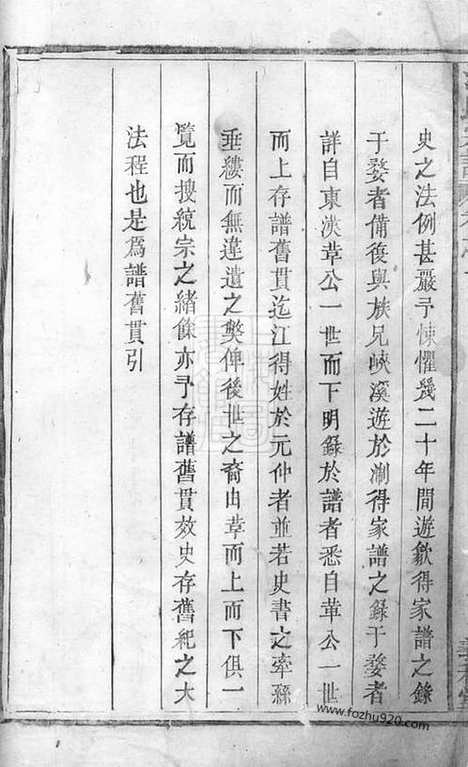 史之法例甚嚴予悚懼幾二十年間遊歙得家譜之錄
于婺者備復與族兄峽溪遊於淛得家譜之錄于婺者
詳自東漢韋公一世而下明錄於譜者悉自韋公一世
而上存譜舊貫迄江得姓於元仲者並若史書之牽絲
垂縷而無違遺之獘俾後世之裔由韋而上而下俱一
覽而搜統宗之緒餘亦予存譜舊貫效史存舊紀之大
法程也是爲譜舊貫引
www.fozhu920.com